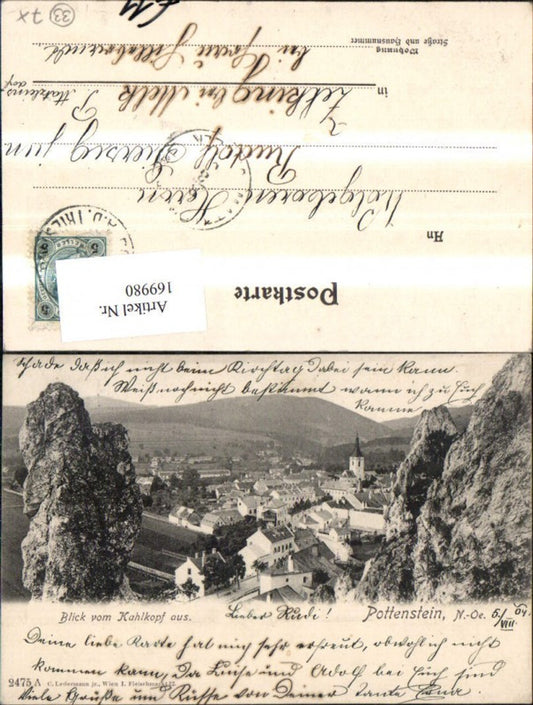 33
7X
Postkarte
Artikel Nr.
169980
An
Wolgeboren Herrn
Rudolf
in Zelking bei Melk
Wohnung
Straße und Hausnummer
bei Frau
5
5
Schade daß ich nicht beim Kirchtag dabei sein kann.
Weiß noch nicht bestimmt wann ich zu Euch
komme
Blick vom Kahlkopf aus.
Lieber Rudi!
Pottenstein, N.-Oe. 6/VIII 04.
Deine liebe Karte hat mich sehr erfreut, obwohl ich nicht
kommen kann, da Luise und Adolf bei Euch sind
2475 A C. Ledermann jr., Wien I. Fleischmarkt
Viele Grüße und Küsse von Deiner Tante Erna.